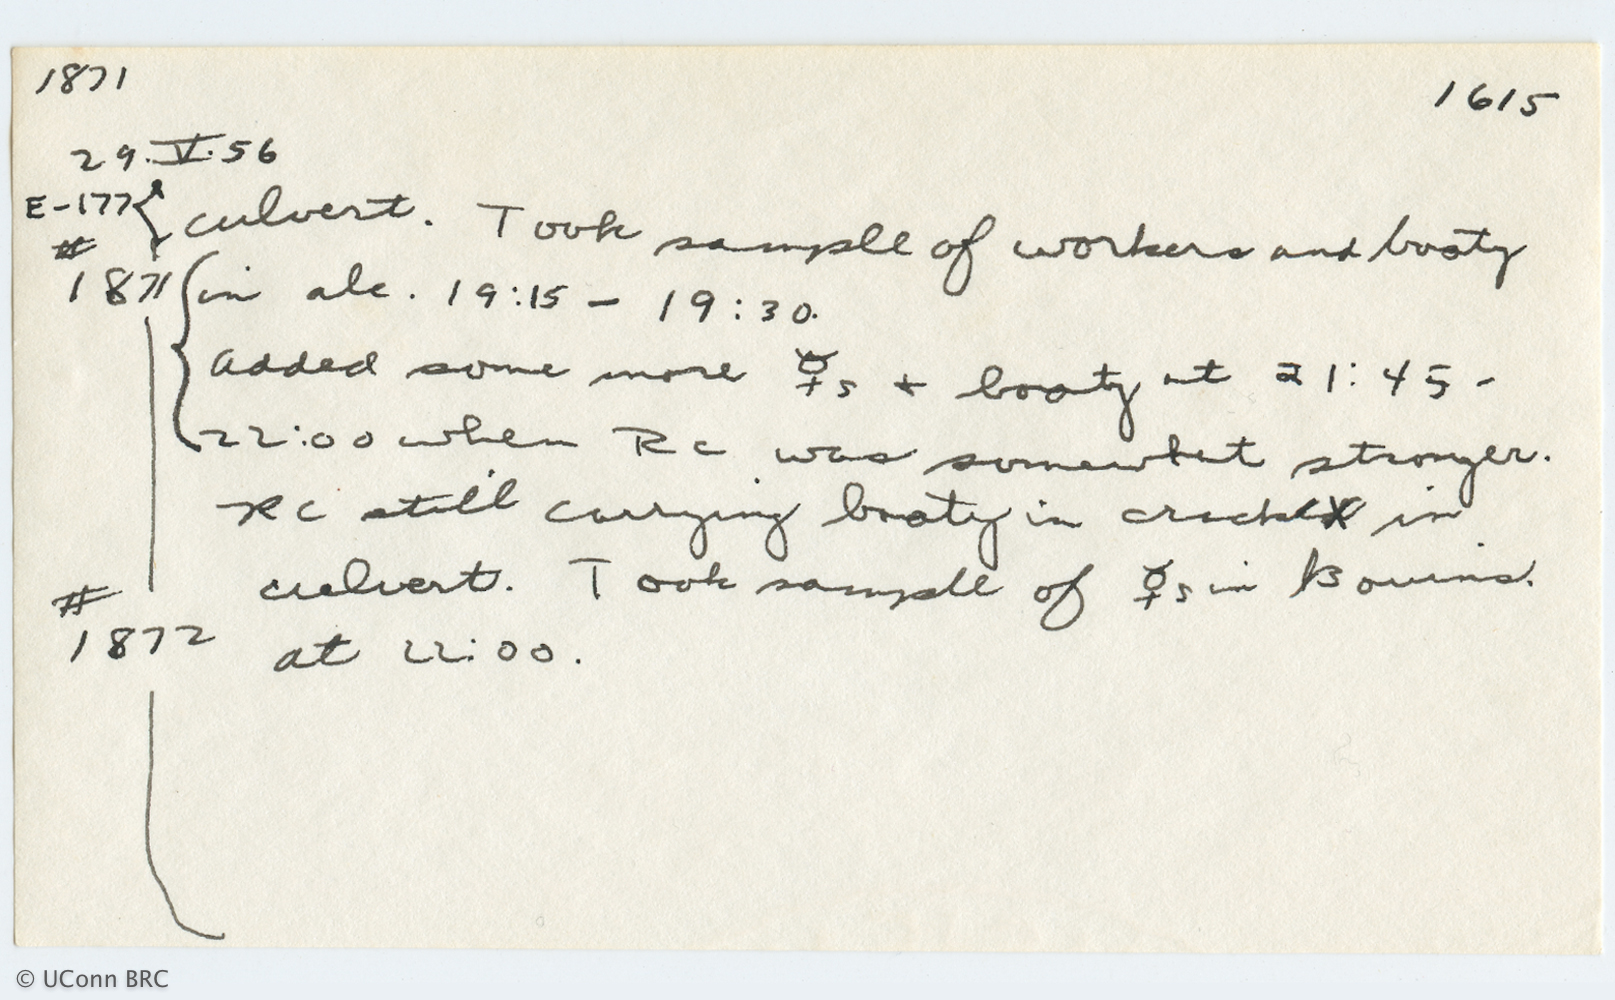 1871
1615
29.V.56
E-177 culvert. Took sample of workers and booty
# 1871 in alc. 19:15 - 19:30.
Added some more ☿s + booty at 21:45 -
22:00 when RC was somewhat stronger.
RC still carrying booty in crack in
culvert. Took sample of ☿s in Bouins.
# 1872 at 22:00.
© UConn BRC